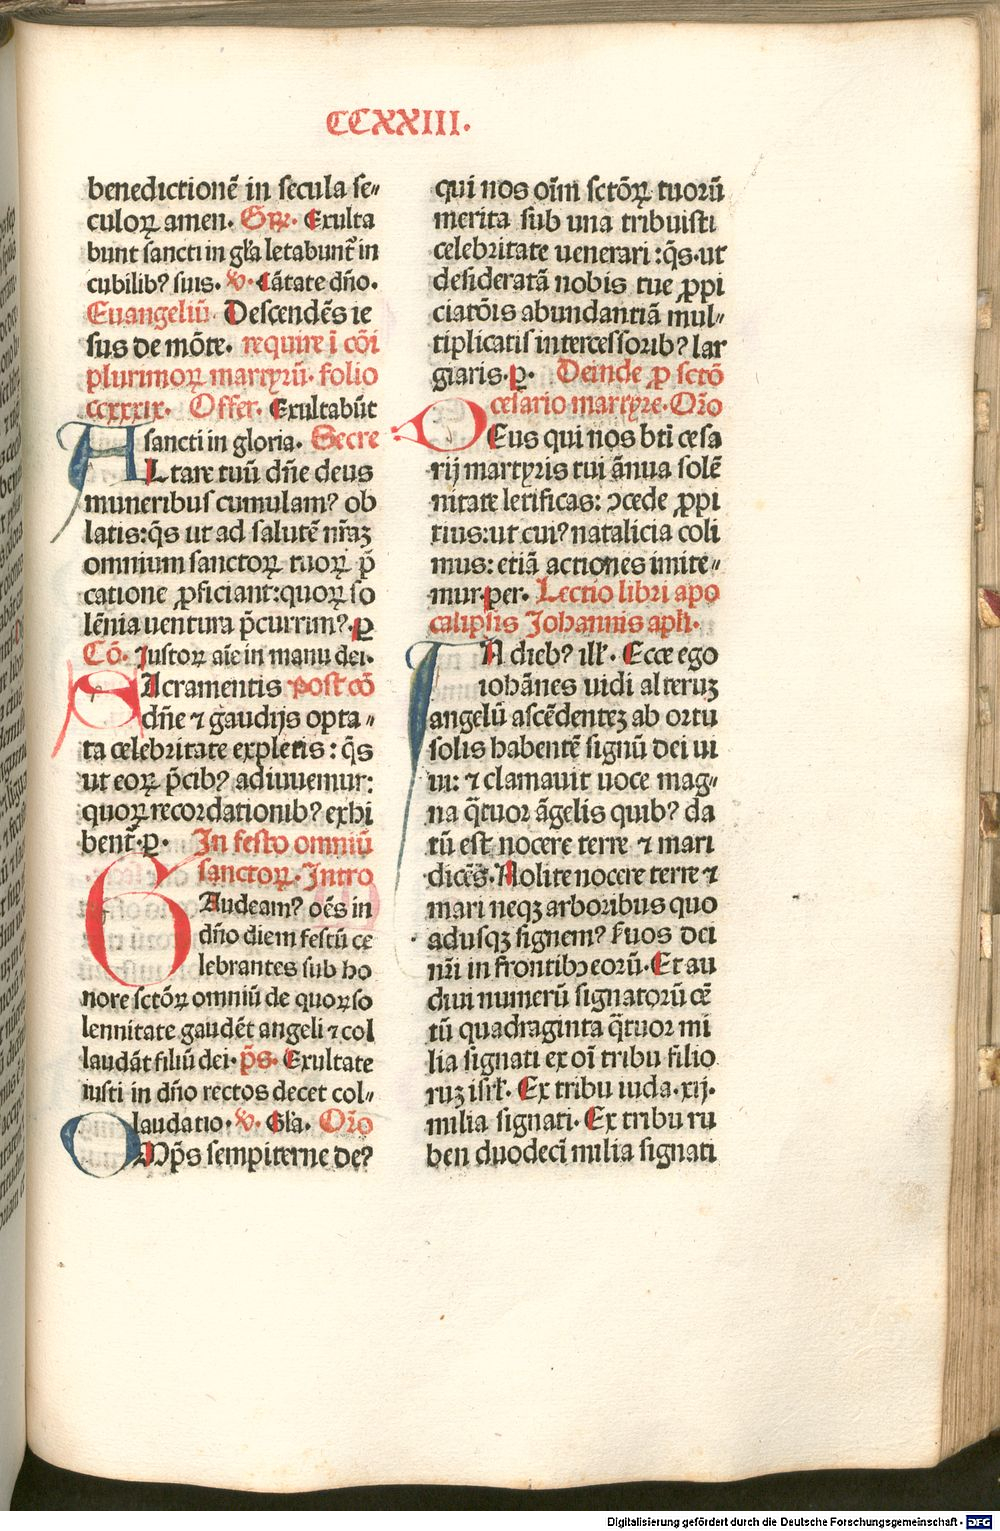 CCXXIII.
benedictionē in secula se⸗
culoꝝ amen. Gꝛꝝ. Exulta
bunt sancti in gl̄a letabunt᷑ in
cubilibꝰ suis. ꝟ. Cātate dn̄o.
Euangeliū. Descendēs ie
sus de mōte. require ī cōi
plurimoꝝ martyrū. folio
ccxxxix. Offer. Exultabūt
sancti in gloria. Secre
ALtare tuū dn̄e deus
muneribus cumulamꝰ ob
latis: q̄s ut ad salutē nr̄aꝫ
omnium sanctoꝝ tuoꝝ p̄
catione ꝓficiant: quoꝝ so
lēnia uentura p̄currimꝰ. ꝑ
Cō. Iustoꝝ aīe in manu dei.
SAcramentis post cō
dn̄e ⁊ gaudijs opta⸗
ta celebritate expletis: q̄s
ut eoꝝ p̄cibꝰ adiuuemur:
quoꝝ recordationibꝰ exhi
bent᷑. ꝑ. In festo omniū
sanctoꝝ. Intro
GAudeamꝰ oēs in
dn̄o diem festū ce
lebrantes sub ho
nore sctōꝝ omniū de quoꝝ so
lennitate gaudēt angeli ⁊ col
laudāt filiū dei. p̄s. Exultate
iusti in dn̄o rectos decet col⸗
laudatio. ꝟ. Gl̄a. Or̄o
OMp̄s sempiterne deꝰ
qui nos oīm sctōꝝ tuorū
merita sub una tribuisti
celebritate uenerari: q̄s. ut
desideratā nobis tue ꝓpi
ciatōis abundantiā mul⸗
tiplicatis intercessoribꝰ lar
giaris. ꝑ. Deinde ꝓ sctō
cesario martyre. Or̄o
DEus qui nos bt̄i cesa
rij martyris tui ānua solē
nitate letificas: ɔcede ꝓpi
tius: ut cuiꝰ natalicia coli
mus: etiā actiones imite⸗
mur. per. Lectio libri apo
calipsis Johannis apl̄i.
IN diebꝰ ill̄. Ecce ego
iohānes uidi alteruꝫ
angelū ascēdenteꝫ ab ortu
solis habentē signū dei ui
ui: ⁊ clamauit uoce mag⸗
na q̄tuor āgelis quibꝰ da
tū est nocere terre ⁊ mari
dicēs. Nolite nocere terre ⁊
mari neqꝫ arboribus quo
adusqꝫ signemꝰ ẜuos dei
nr̄i in frontibꝰ eorū. Et au
diui numerū signatorū cē
tū quadraginta q̄tuor mi
lia signati ex oī tribu filio
ruꝫ isrl̄. Ex tribu iuda. xij.
milia signati. Ex tribu ru
ben duodecī milia signati
Digitalisierung gefördert durch die Deutsche Forschungsgemeinschaft - DFG